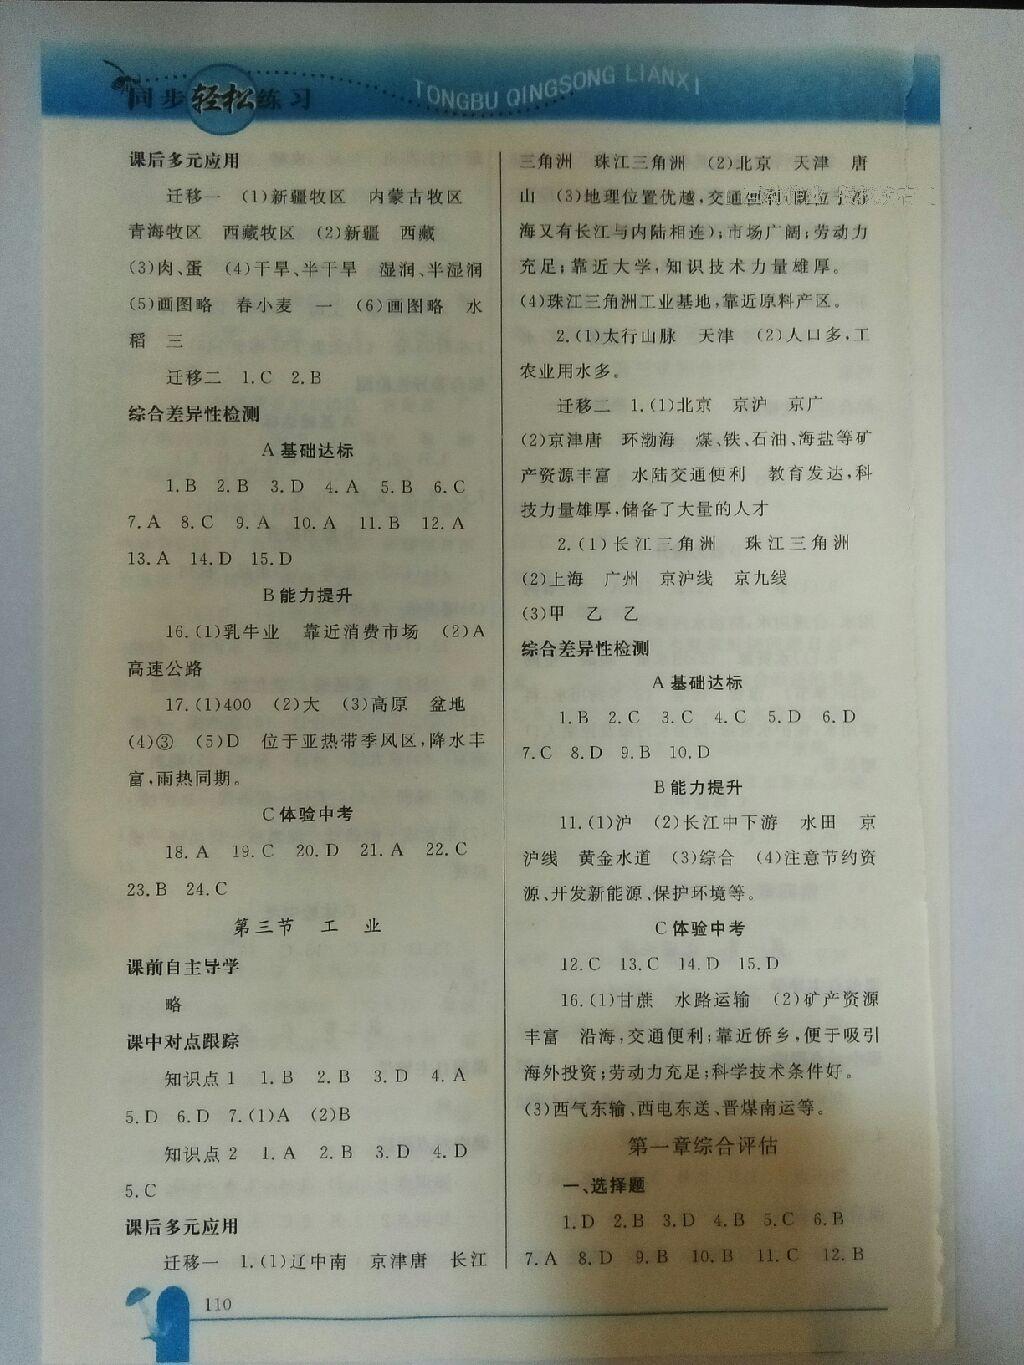 同步轻松练习
TONGBU QINGSONG LIANXI
课后多元应用
迁移一 (1)新疆牧区 内蒙古牧区
青海牧区 西藏牧区 (2)新疆 西藏
(3)肉、蛋 (4)干旱、半干旱 湿润、半湿润
(5)画图略 春小麦 一 (6)画图略 水
稻 三
迁移二 1.C 2.B
综合差异性检测
A 基础达标
1.B 2.B 3.D 4.A 5.B 6.C
7.A 8.C 9.A 10.A 11.B 12.A
13.A 14.D 15.D
B 能力提升
16.(1)乳牛业 靠近消费市场 (2)A
高速公路
17.(1)400 (2)大 (3)高原 盆地
(4)③ (5)D 位于亚热带季风区,降水丰
富,雨热同期。
C 体验中考
18.A 19.C 20.D 21.A 22.C
23.B 24.C
第三节 工 业
课前自主导学
略
课中对点跟踪
知识点1 1.B 2.B 3.D 4.A
5.D 6.D 7.(1)A (2)B
知识点2 1.A 2.B 3.D 4.D
5.C
课后多元应用
迁移一 1.(1)辽中南 京津唐 长江
三角洲 珠江三角洲 (2)北京 天津 唐
山 (3)地理位置优越,交通便利
海又有长江与内陆相连);市场广阔;劳动力
充足;靠近大学,知识技术力量雄厚。
(4)珠江三角洲工业基地,靠近原料产区。
2.(1)太行山脉 天津 (2)人口多,工
农业用水多。
迁移二 1.(1)北京 京沪 京广
(2)京津唐 环渤海 煤、铁、石油、海盐等矿
产资源丰富 水陆交通便利 教育发达,科
技力量雄厚,储备了大量的人才
2.(1)长江三角洲 珠江三角洲
(2)上海 广州 京沪线 京九线
(3)甲 乙 乙
综合差异性检测
A 基础达标
1.B 2.C 3.C 4.C 5.D 6.D
7.C 8.D 9.B 10.D
B 能力提升
11.(1)沪 (2)长江中下游 水田 京
沪线 黄金水道 (3)综合 (4)注意节约资
源、开发新能源、保护环境等。
C 体验中考
12.C 13.C 14.D 15.D
16.(1)甘蔗 水路运输 (2)矿产资源
丰富 沿海,交通便利;靠近侨乡,便于吸引
海外投资;劳动力充足;科学技术条件好。
(3)西气东输、西电东送、晋煤南运等。
第一章综合评估
一、选择题
1.D 2.B 3.D 4.B 5.C 6.B
7.A 8.D 9.B 10.B 11.C 12.B
110